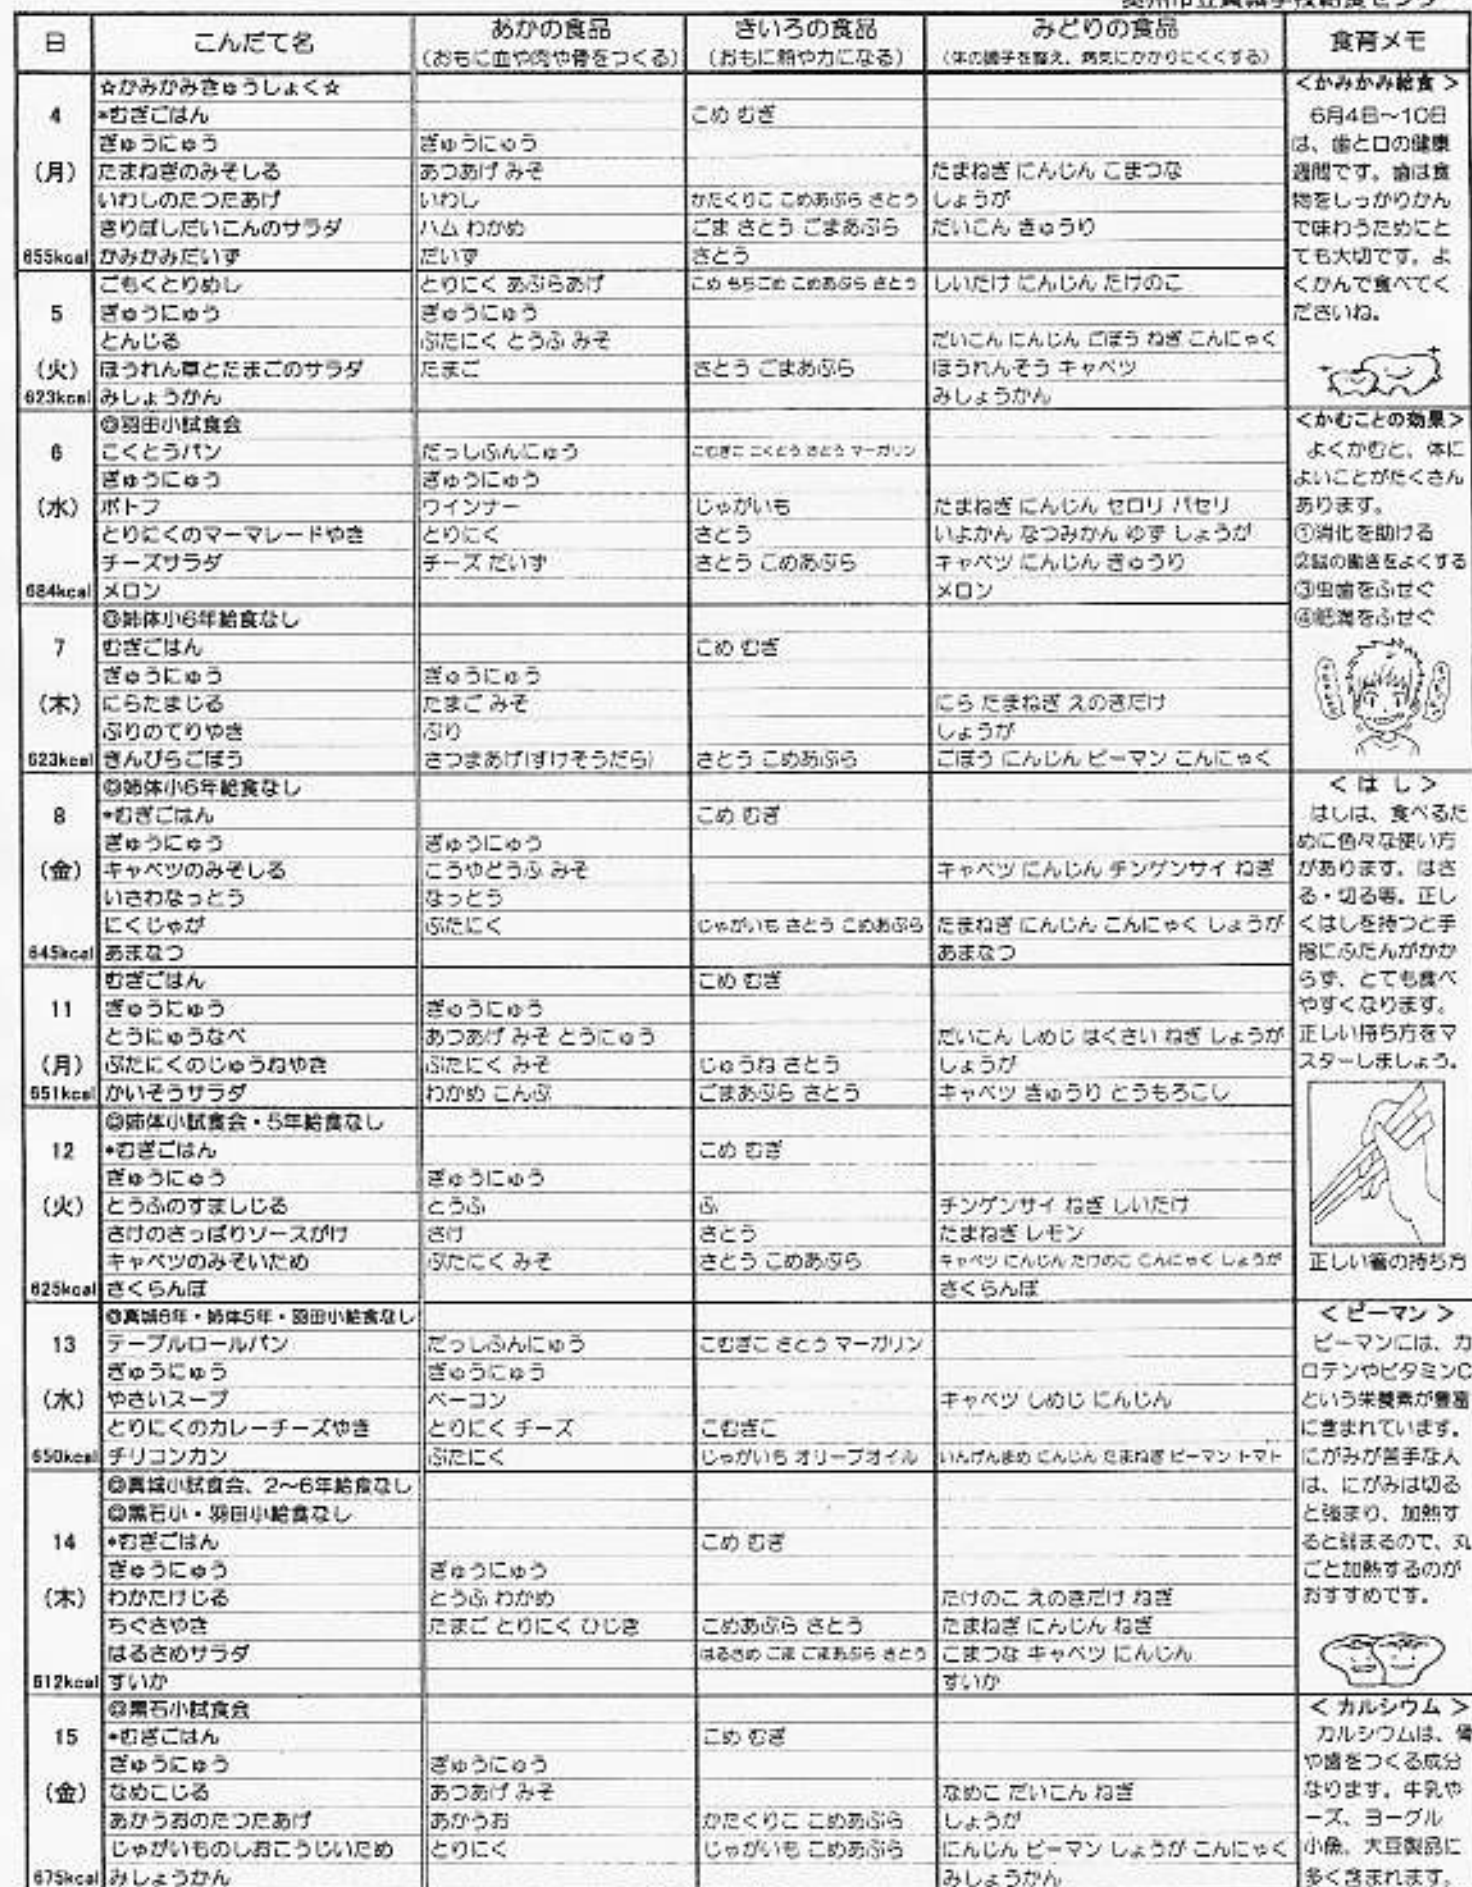 日 こんだて名 あかの食品 きいろの食品 みどりの食品 食育メモ
(おもに血や肉や骨をつくる) (おもに熱や力になる) (体の調子を整え、病気にかかりにくくする)
☆かみかみきゅうしょく☆
4 *むぎごはん こめ むぎ
ぎゅうにゅう ぎゅうにゅう
(月) たまねぎのみそしる あつあげ みそ たまねぎ にんじん こまつな
いわしのたつたあげ いわし かたくりこ こめあぶら さとう しょうが
きりぼしだいこんのサラダ ハム わかめ ごま さとう ごまあぶら だいこん きゅうり
655kcal かみかみだいず だいず さとう
ごもくとりめし とりにく あぶらあげ こめ もちごめ こめあぶら さとう しいたけ にんじん たけのこ
5 ぎゅうにゅう ぎゅうにゅう
とんじる ぶたにく とうふ みそ だいこん にんじん ごぼう ねぎ こんにゃく
(火) ほうれん草とたまごのサラダ たまご さとう ごまあぶら ほうれんそう キャベツ
623kcal みしょうかん みしょうかん
◎羽田小試食会
6 こくとうパン だっしふんにゅう こむぎこ こくとう さとう マーガリン
ぎゅうにゅう ぎゅうにゅう
(水) ポトフ ウインナー じゃがいも たまねぎ にんじん セロリ パセリ
とりにくのマーマレードやき とりにく さとう いよかん なつみかん ゆず しょうが
チーズサラダ チーズ だいず さとう こめあぶら キャベツ にんじん きゅうり
684kcal メロン メロン
◎姉体小6年給食なし
7 むぎごはん こめ むぎ
ぎゅうにゅう ぎゅうにゅう
(木) にらたまじる たまご みそ にら たまねぎ えのきだけ
ぶりのてりやき ぶり しょうが
623kcal きんぴらごぼう さつまあげ(すけそうだら) さとう こめあぶら ごぼう にんじん ピーマン こんにゃく
◎姉体小6年給食なし
8 *むぎごはん こめ むぎ
ぎゅうにゅう ぎゅうにゅう
(金) キャベツのみそしる こうやどうふ みそ キャベツ にんじん チンゲンサイ ねぎ
いさわなっとう なっとう
にくじゃが ぶたにく じゃがいも さとう こめあぶら たまねぎ にんじん こんにゃく しょうが
645kcal あまなつ あまなつ
むぎごはん こめ むぎ
11 ぎゅうにゅう ぎゅうにゅう
とうにゅうなべ あつあげ みそ とうにゅう だいこん しめじ はくさい ねぎ しょうが
(月) ぶたにくのじゅうねやき ぶたにく みそ じゅうね さとう しょうが
651kcal かいそうサラダ わかめ こんぶ ごまあぶら さとう キャベツ きゅうり とうもろこし
◎姉体小試食会・5年給食なし
12 *むぎごはん こめ むぎ
ぎゅうにゅう ぎゅうにゅう
(火) とうふのすましじる とうふ ふ チンゲンサイ ねぎ しいたけ
さけのさっぱりソースがけ さけ さとう たまねぎ レモン
キャベツのみそいため ぶたにく みそ さとう こめあぶら キャベツ にんじん たけのこ こんにゃく しょうが
625kcal さくらんぼ さくらんぼ
◎真城6年・姉体5年・羽田小給食なし
13 テーブルロールパン だっしふんにゅう こむぎこ さとう マーガリン
ぎゅうにゅう ぎゅうにゅう
(水) やさいスープ ベーコン キャベツ しめじ にんじん
とりにくのカレーチーズやき とりにく チーズ こむぎこ
650kcal チリコンカン ぶたにく じゃがいも オリーブオイル いんげんまめ にんじん たまねぎ ピーマン トマト
◎真城小試食会、2～6年給食なし
◎黒石小・羽田小給食なし
14 *むぎごはん こめ むぎ
ぎゅうにゅう ぎゅうにゅう
(木) わかたけじる とうふ わかめ たけのこ えのきだけ ねぎ
ちぐさやき たまご とりにく ひじき こめあぶら さとう たまねぎ にんじん ねぎ
はるさめサラダ はるさめ ごま ごまあぶら さとう こまつな キャベツ にんじん
612kcal すいか すいか
◎黒石小試食会
15 *むぎごはん こめ むぎ
ぎゅうにゅう ぎゅうにゅう
(金) なめこじる あつあげ みそ なめこ だいこん ねぎ
あかうおのたつたあげ あかうお かたくりこ こめあぶら しょうが
じゃがいものしおこうじいため とりにく じゃがいも こめあぶら にんじん ピーマン しょうが こんにゃく
675kcal みしょうかん みしょうかん
＜かみかみ給食＞
6月4日～10日
は、歯と口の健康
週間です。歯は食
物をしっかりかん
で味わうためにと
ても大切です。よ
くかんで食べてく
ださいね。
＜かむことの効果＞
よくかむと、体に
よいことがたくさん
あります。
①消化を助ける
②脳の働きをよくする
③虫歯をふせぐ
④肥満をふせぐ
＜はし＞
はしは、食べるた
めに色々な使い方
があります。はさ
る・切る等。正し
くはしを持つと手
指にふたんがかか
らず、とても食べ
やすくなります。
正しい持ち方をマ
スターしましょう。
正しい箸の持ち方
＜ピーマン＞
ピーマンには、カ
ロテンやビタミンC
という栄養素が豊富
に含まれています。
にがみが苦手な人
は、にがみは切る
と強まり、加熱す
ると弱まるので、丸
ごと加熱するのが
おすすめです。
＜カルシウム＞
カルシウムは、骨
や歯をつくる成分
なります。牛乳や
ーズ、ヨーグル
小魚、大豆製品に
多く含まれます。